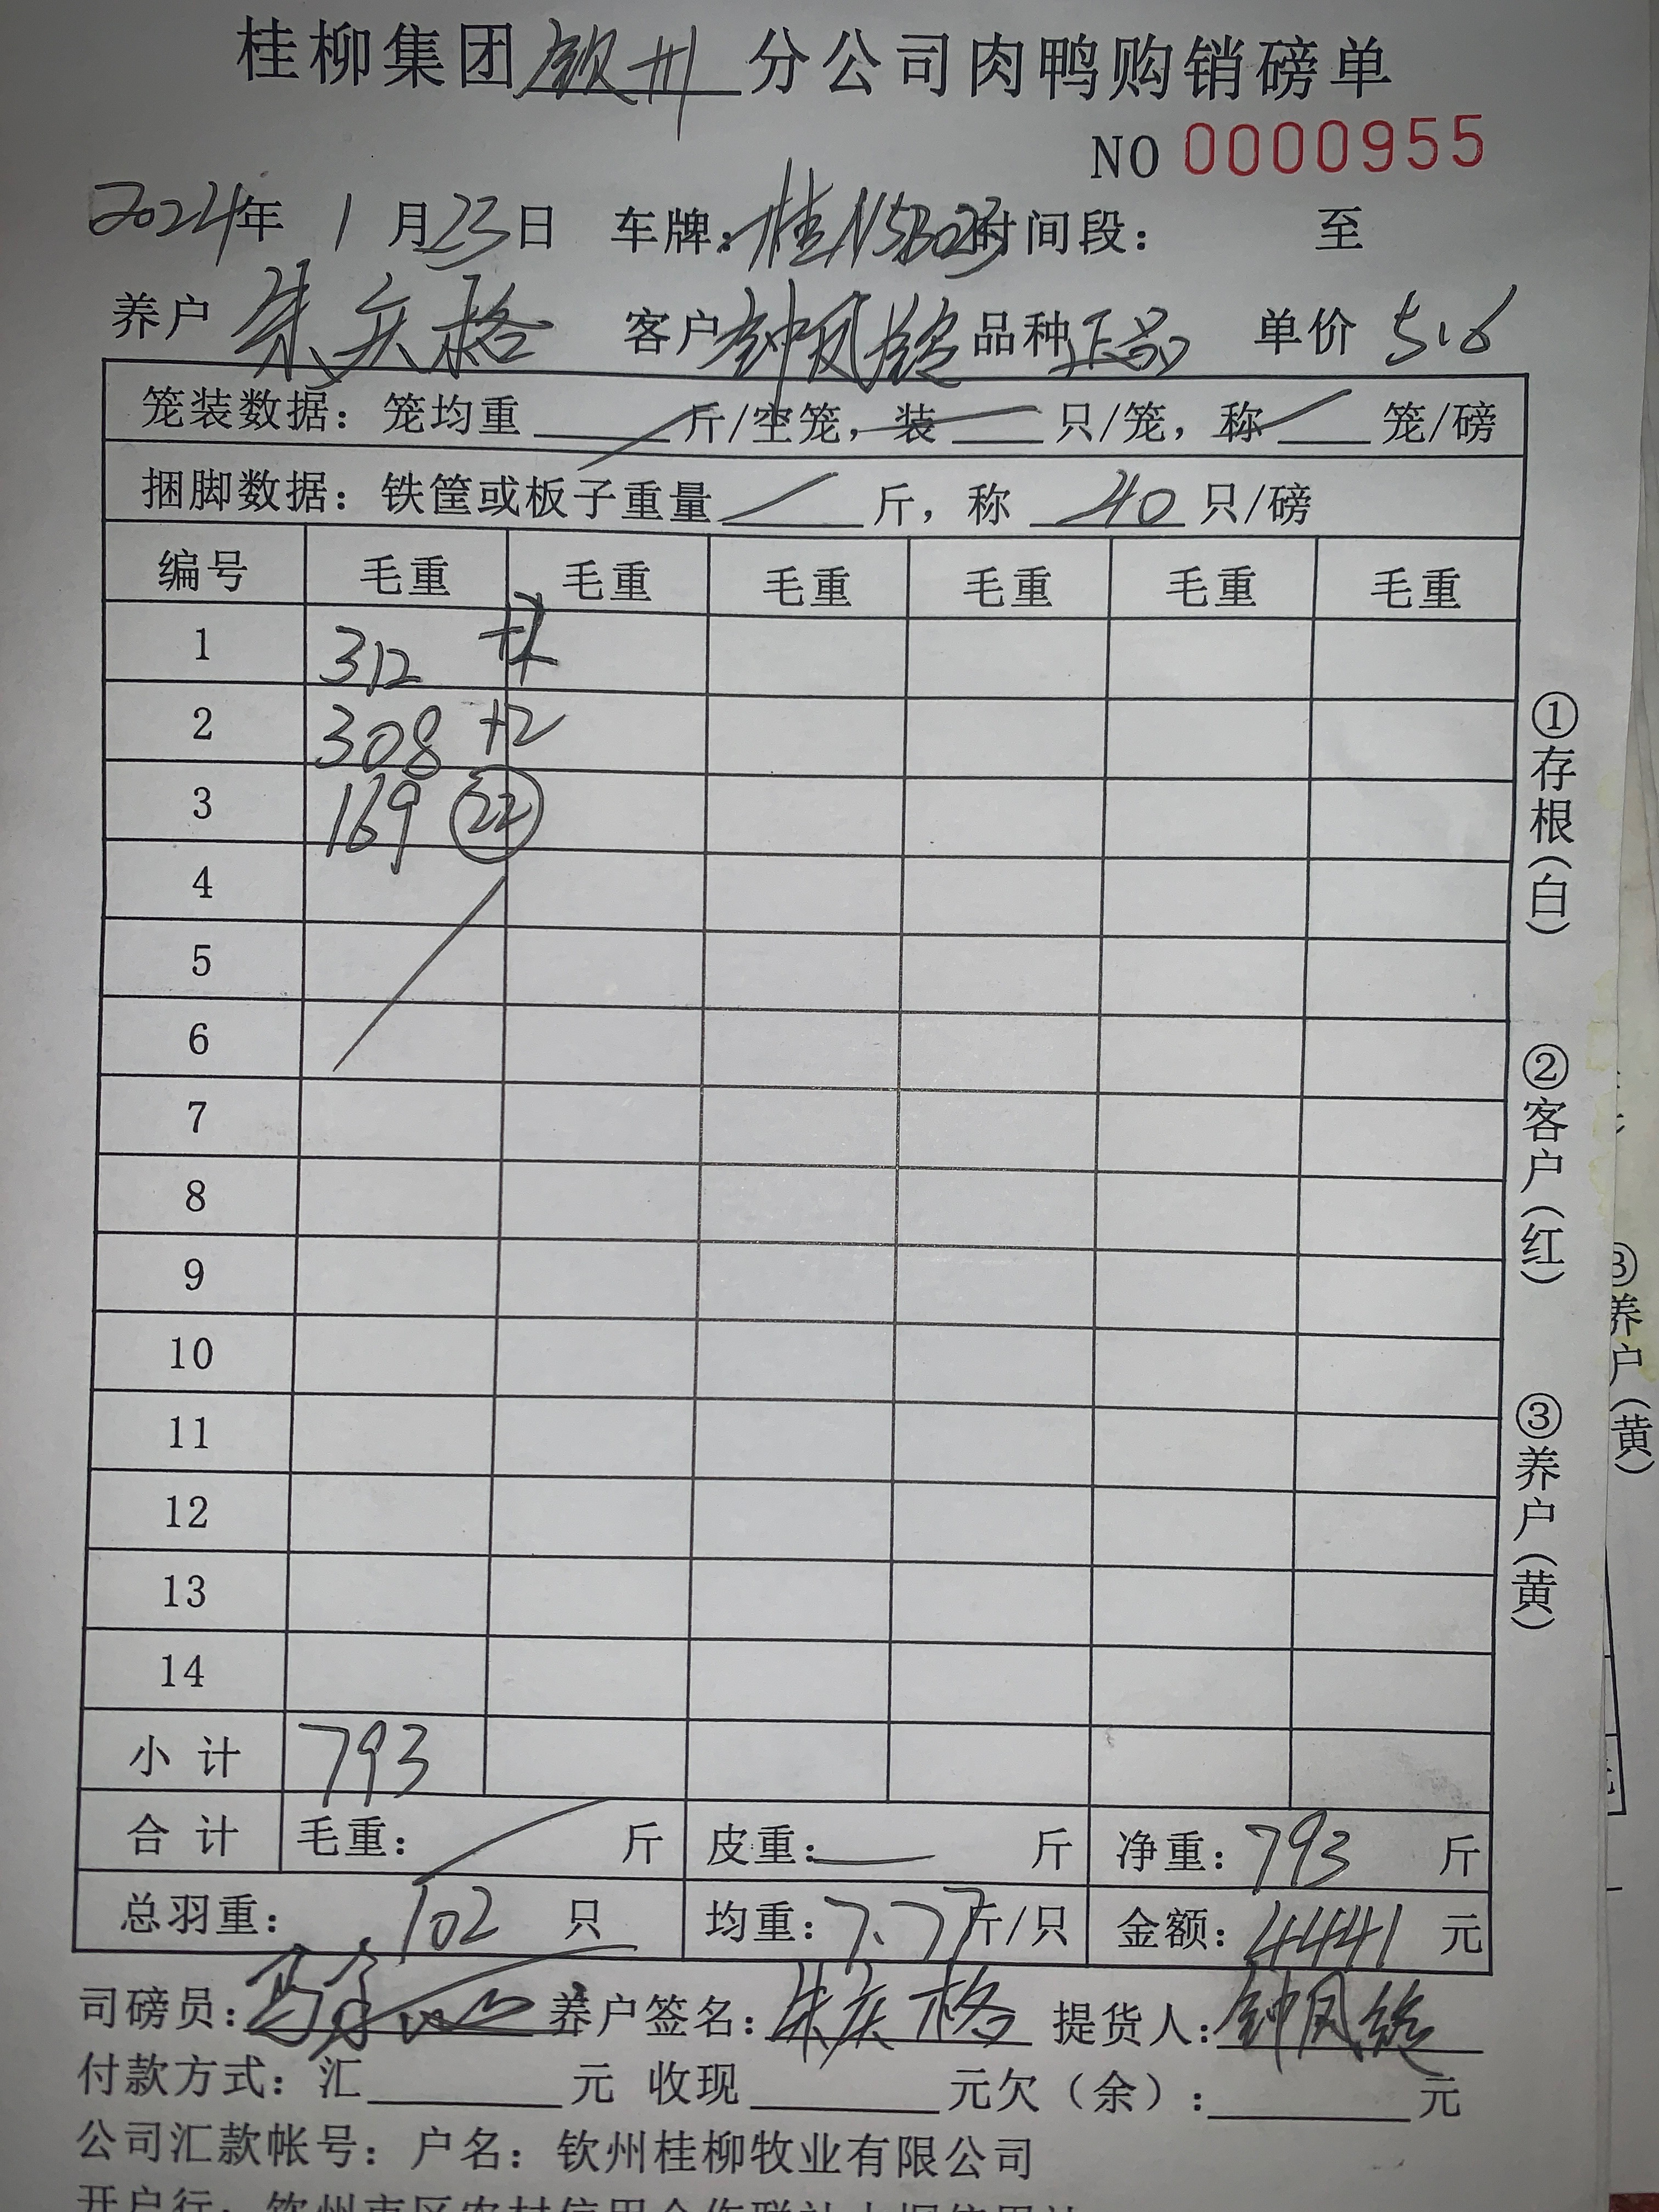 桂柳集团 钦州 分公司肉鸭购销磅单
NO 0000955
2024年 1 月 23 日 车牌：桂N5B023 时间段： 至
养户 朱庆格 客户 钟凤 品种 正品 单价 5.6
笼装数据：笼均重 斤/空笼，装 只/笼，称 笼/磅
捆脚数据：铁筐或板子重量 斤，称 40 只/磅
编号 毛重 毛重 毛重 毛重 毛重 毛重
1 312
2 308 +2
3 169 22
4
5
6
7
8
9
10
11
12
13
14
小 计 793
合 计 毛重： 斤 皮重： 斤 净重：793 斤
总羽重： 102 只 均重：7.77 斤/只 金额：4441 元
司磅员： 养户签名：朱庆格 提货人：钟凤
付款方式：汇 元 收现 元欠（余）： 元
公司汇款帐号：户名：钦州桂柳牧业有限公司
开户行：钦州市区农村信用合作联社
①存根（白）
②客户（红）
③养户（黄）
③养户（黄）